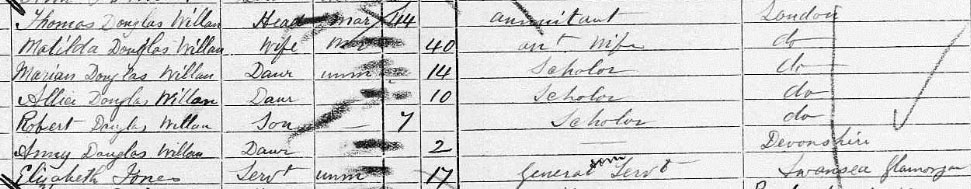 Thomas Douglas Willan Head Mar 44 annuitant London
Matilda Douglas Willan Wife Mar 40 an^t Wife do
Marian Douglas Willan Daur unm 14 Scholar do
Allice Douglas Willan Daur 10 Scholar do
Robert Douglas Willan Son — 7 Scholar do
Anny Douglas Willan Daur 2 — Devonshire
Elizabeth Jones Servt unm 17 General dom Servt Swansea Glamorgan